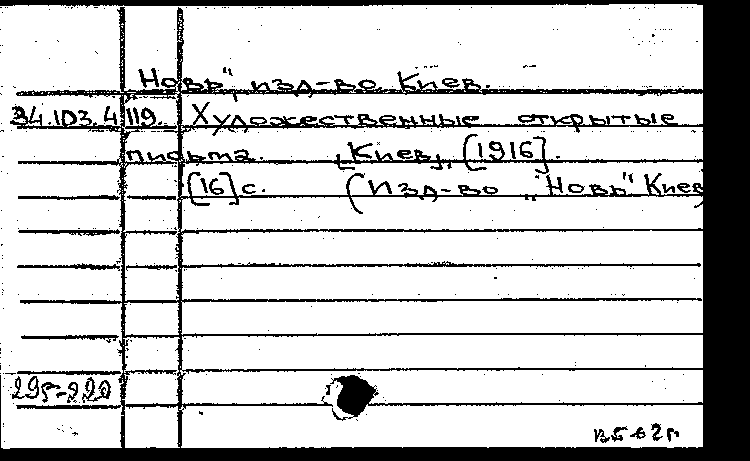 Новь", изд-во. Киев.
34.103.4 119. Художественные открытые
письма. [Киев], [1916].
[16] с. (Изд-во „Новь" Киев)
295-220